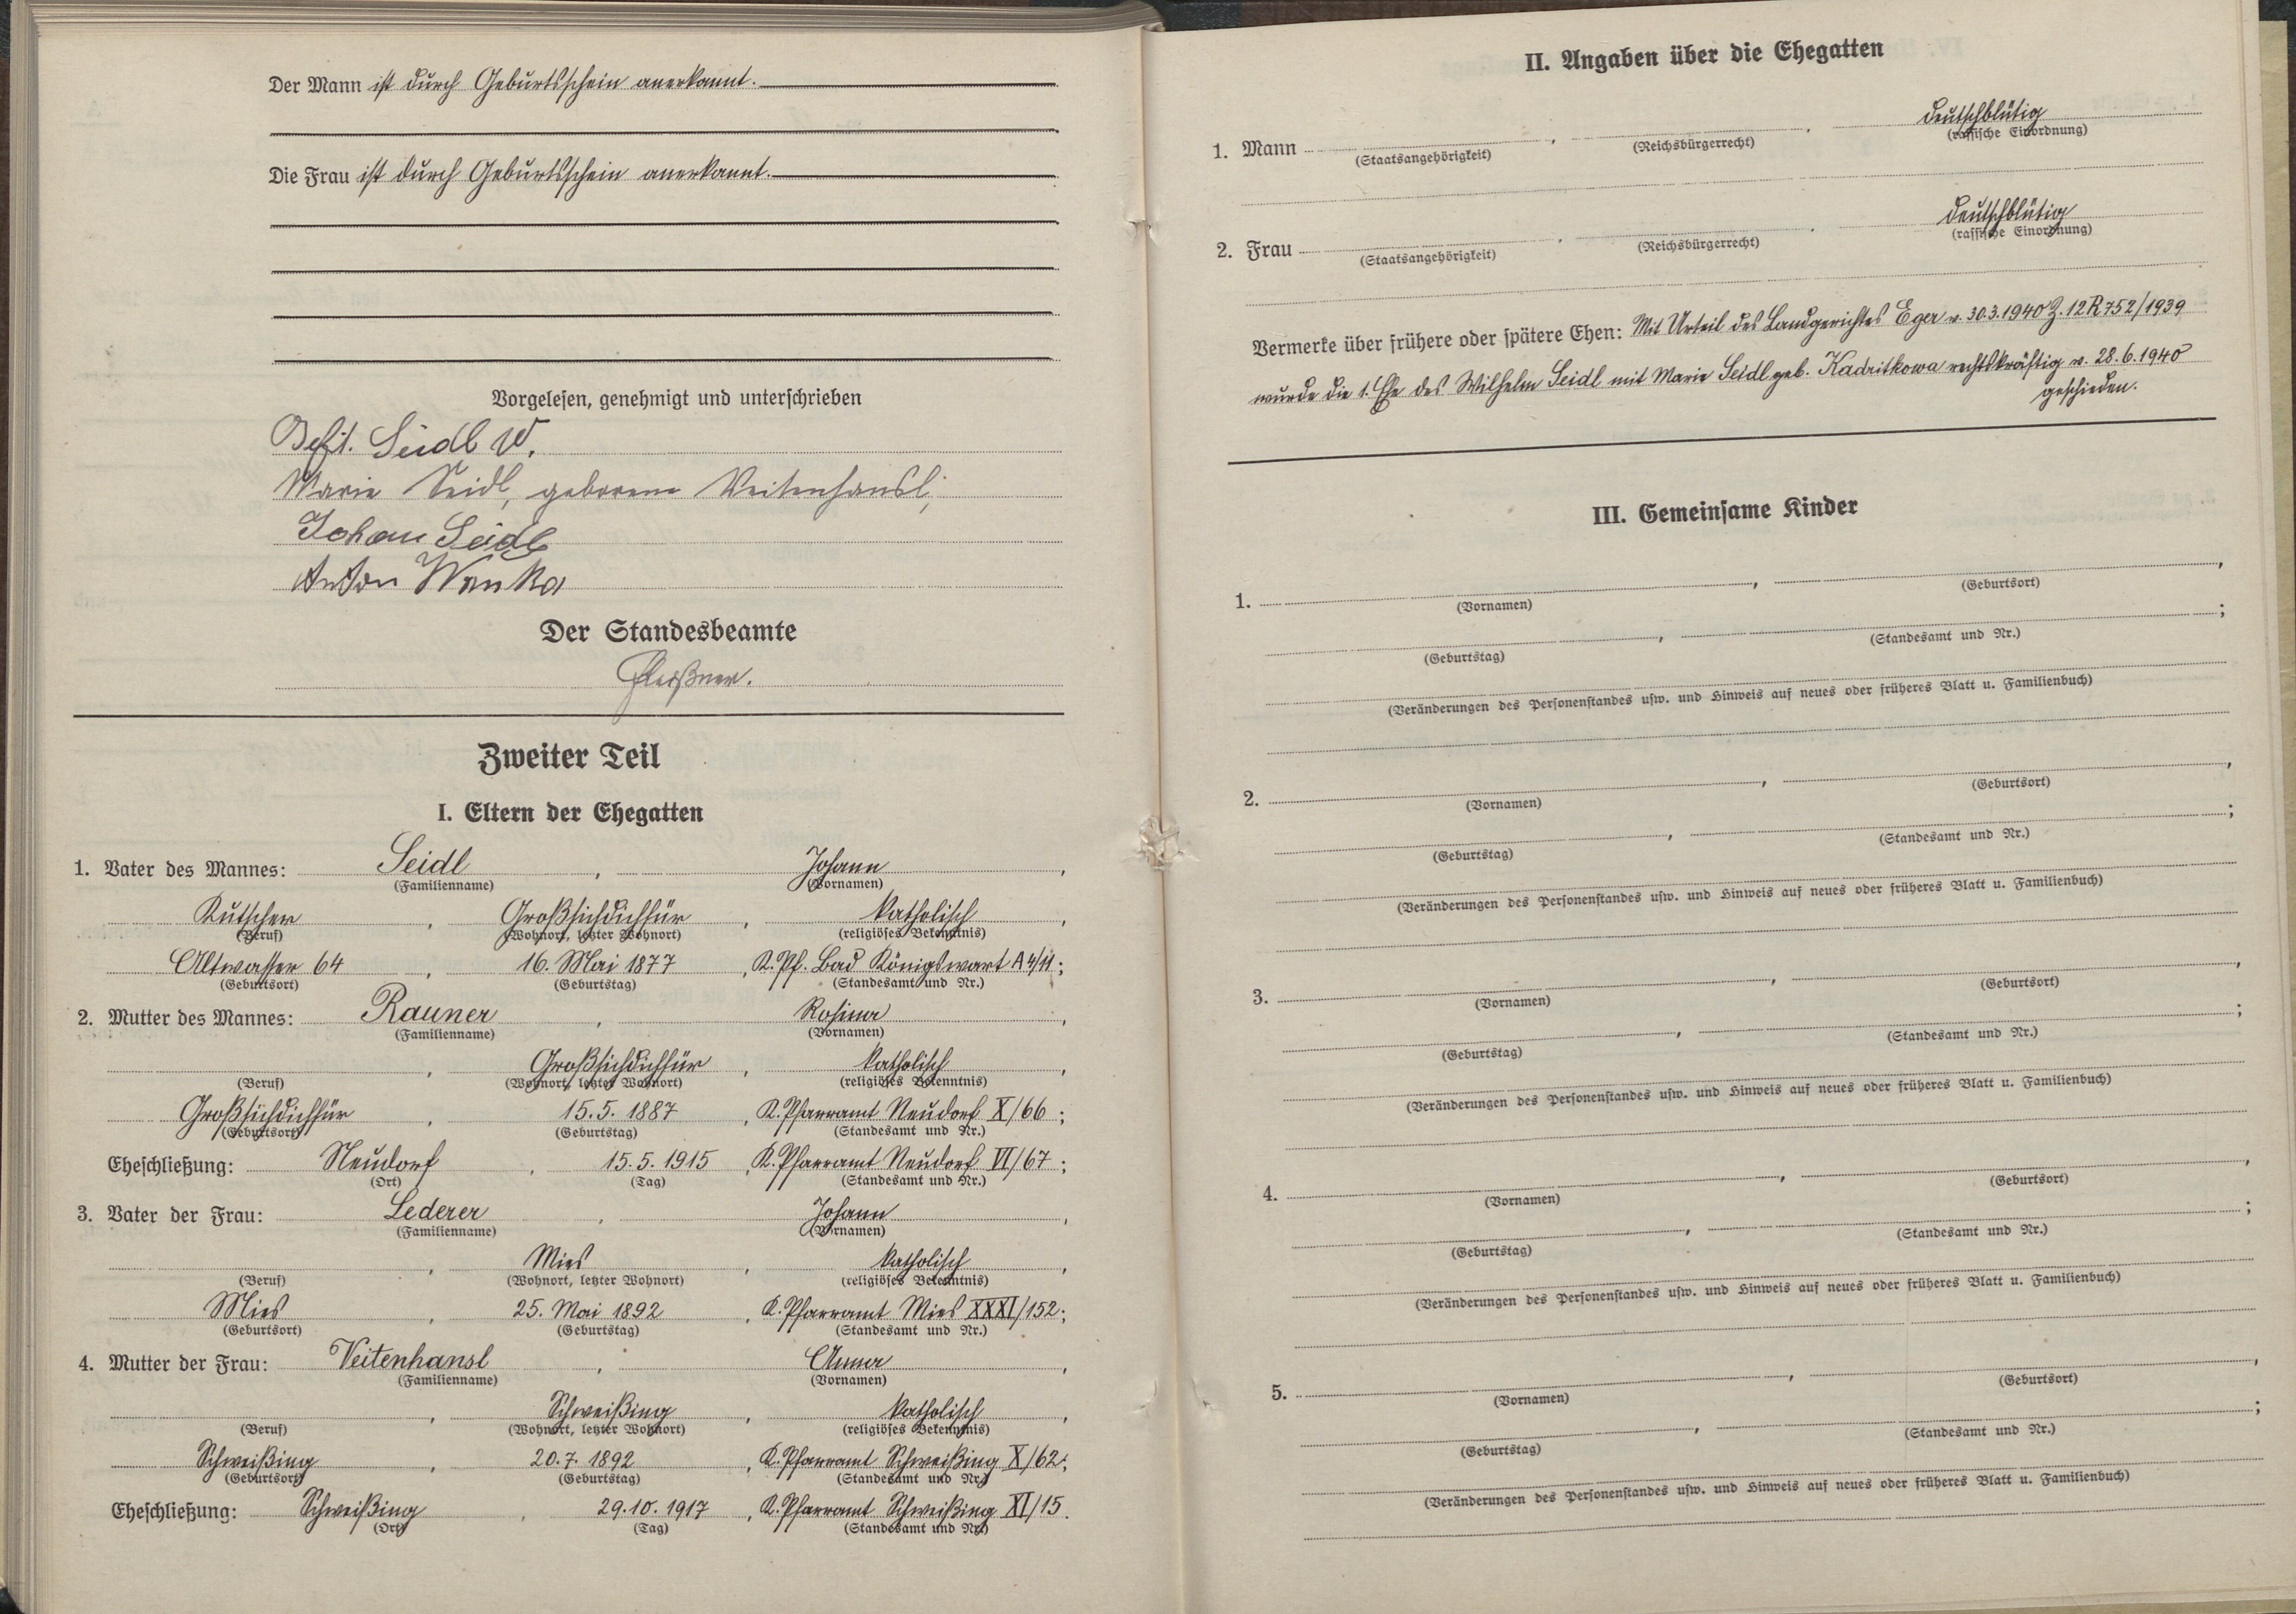 Der Mann ist durch Geburtsschein anerkannt.
Die Frau ist durch Geburtsschein anerkannt.
Vorgelesen, genehmigt und unterschrieben
Seidl W.
Marie Seidl, geborene Veitenhansl,
Johan Seidl
Anton Wanka
Der Standesbeamte
Zweiter Teil
I. Eltern der Ehegatten
1. Vater des Mannes: Seidl, Johann,
(Familienname) (Vornamen)
Kutscher, Großsichdichfür, katholisch,
(Beruf) (Wohnort, letzter Wohnort) (religiöses Bekenntnis)
Altwasser 64, 16. Mai 1877, K. Pf. Bad Königswart A 4/11;
(Geburtsort) (Geburtstag) (Standesamt und Nr.)
2. Mutter des Mannes: Rauner, Rosina,
(Familienname) (Vornamen)
, Großsichdichfür, katholisch,
(Beruf) (Wohnort, letzter Wohnort) (religiöses Bekenntnis)
Großsichdichfür, 15.5.1887, K. Pfarramt Neudorf X/66;
(Geburtsort) (Geburtstag) (Standesamt und Nr.)
Eheschließung: Neudorf, 15.5.1915, K. Pfarramt Neudorf VI/67;
(Ort) (Tag) (Standesamt und Nr.)
3. Vater der Frau: Lederer, Johann,
(Familienname) (Vornamen)
, Mies, katholisch,
(Beruf) (Wohnort, letzter Wohnort) (religiöses Bekenntnis)
Mies, 25. Mai 1892, K. Pfarramt Mies XXXI/152;
(Geburtsort) (Geburtstag) (Standesamt und Nr.)
4. Mutter der Frau: Veitenhansl, Anna,
(Familienname) (Vornamen)
, Schweißing, katholisch,
(Beruf) (Wohnort, letzter Wohnort) (religiöses Bekenntnis)
Schweißing, 20.7.1892, K. Pfarramt Schweißing X/62;
(Geburtsort) (Geburtstag) (Standesamt und Nr.)
Eheschließung: Schweißing, 29.10.1917, K. Pfarramt Schweißing XI/15.
(Ort) (Tag) (Standesamt und Nr.)
II. Angaben über die Ehegatten
1. Mann , , deutschblütig
(Staatsangehörigkeit) (Reichsbürgerrecht) (rassische Einordnung)
2. Frau , , deutschblütig
(Staatsangehörigkeit) (Reichsbürgerrecht) (rassische Einordnung)
Vermerke über frühere oder spätere Ehen: Mit Urteil des Landgerichtes Eger v. 30.3.1940 Z. 12R752/1939
wurde die 1. Ehe des Wilhelm Seidl mit Marie Seidl geb. Kadritkowa rechtskräftig v. 28.6.1940
geschieden.
III. Gemeinsame Kinder
1. , ,
(Vornamen) (Geburtsort)
, ;
(Geburtstag) (Standesamt und Nr.)
(Veränderungen des Personenstandes usw. und Hinweis auf neues oder früheres Blatt u. Familienbuch)
2. , ,
(Vornamen) (Geburtsort)
, ;
(Geburtstag) (Standesamt und Nr.)
(Veränderungen des Personenstandes usw. und Hinweis auf neues oder früheres Blatt u. Familienbuch)
3. , ,
(Vornamen) (Geburtsort)
, ;
(Geburtstag) (Standesamt und Nr.)
(Veränderungen des Personenstandes usw. und Hinweis auf neues oder früheres Blatt u. Familienbuch)
4. , ,
(Vornamen) (Geburtsort)
, ;
(Geburtstag) (Standesamt und Nr.)
(Veränderungen des Personenstandes usw. und Hinweis auf neues oder früheres Blatt u. Familienbuch)
5. , ,
(Vornamen) (Geburtsort)
, ;
(Geburtstag) (Standesamt und Nr.)
(Veränderungen des Personenstandes usw. und Hinweis auf neues oder früheres Blatt u. Familienbuch)